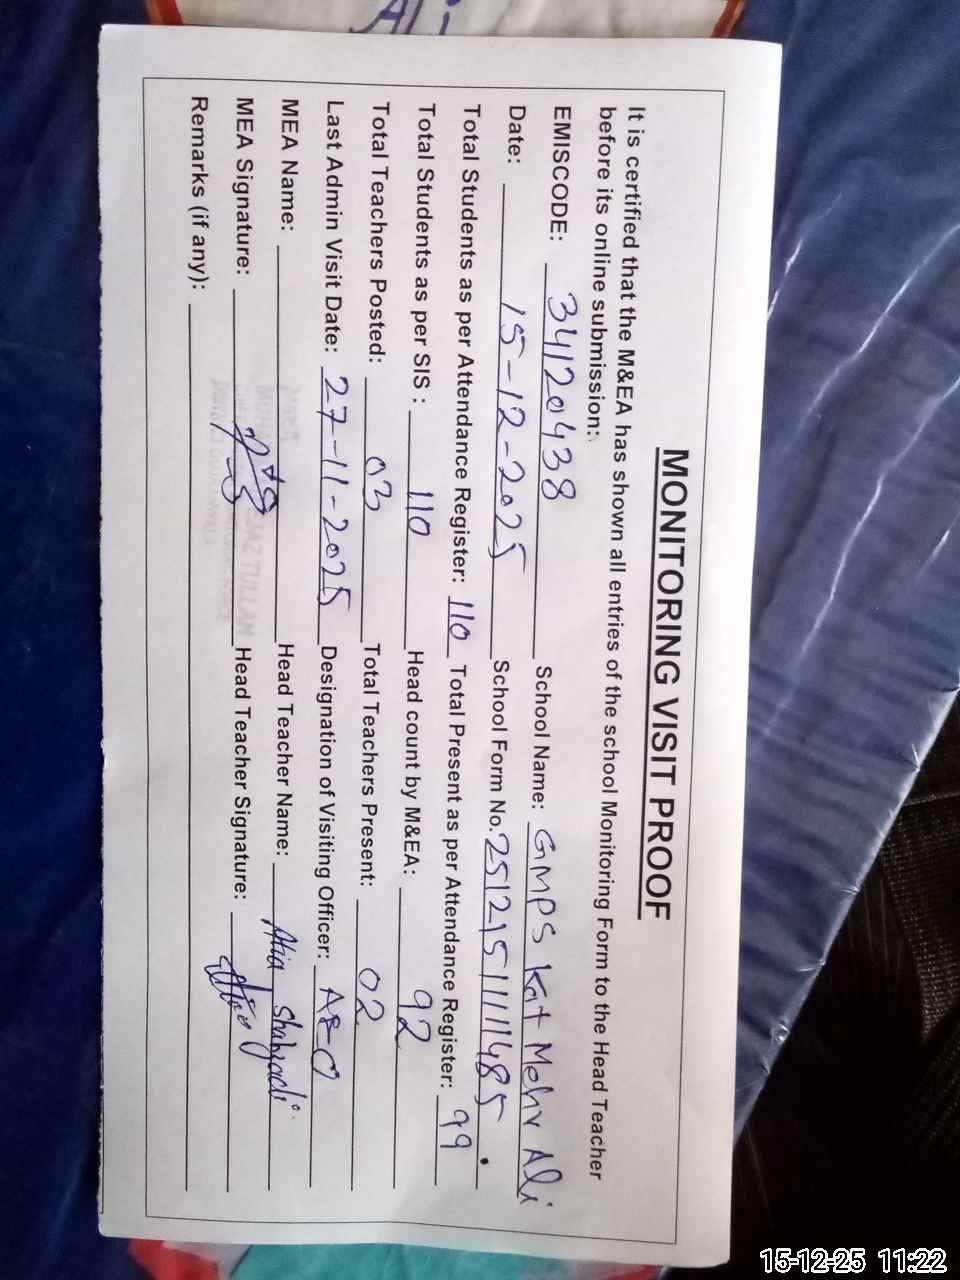 MONITORING VISIT PROOF
It is certified that the M&EA has shown all entries of the school Monitoring Form to the Head Teacher
before its online submission:
EMISCODE: 34120438 School Name: GMPS Kot Mehr Ali
Date: 15-12-2025 School Form No. 251215111111485
Total Students as per Attendance Register: 110 Total Present as per Attendance Register: 99
Total Students as per SIS : 110 Head count by M&EA: 92
Total Teachers Posted: 03 Total Teachers Present: 02
Last Admin Visit Date: 27-11-2025 Designation of Visiting Officer: AEO
MEA Name: Head Teacher Name: Atia Shahzadi
MEA Signature: Head Teacher Signature: Atia
Remarks (if any):
15-12-25 11:22